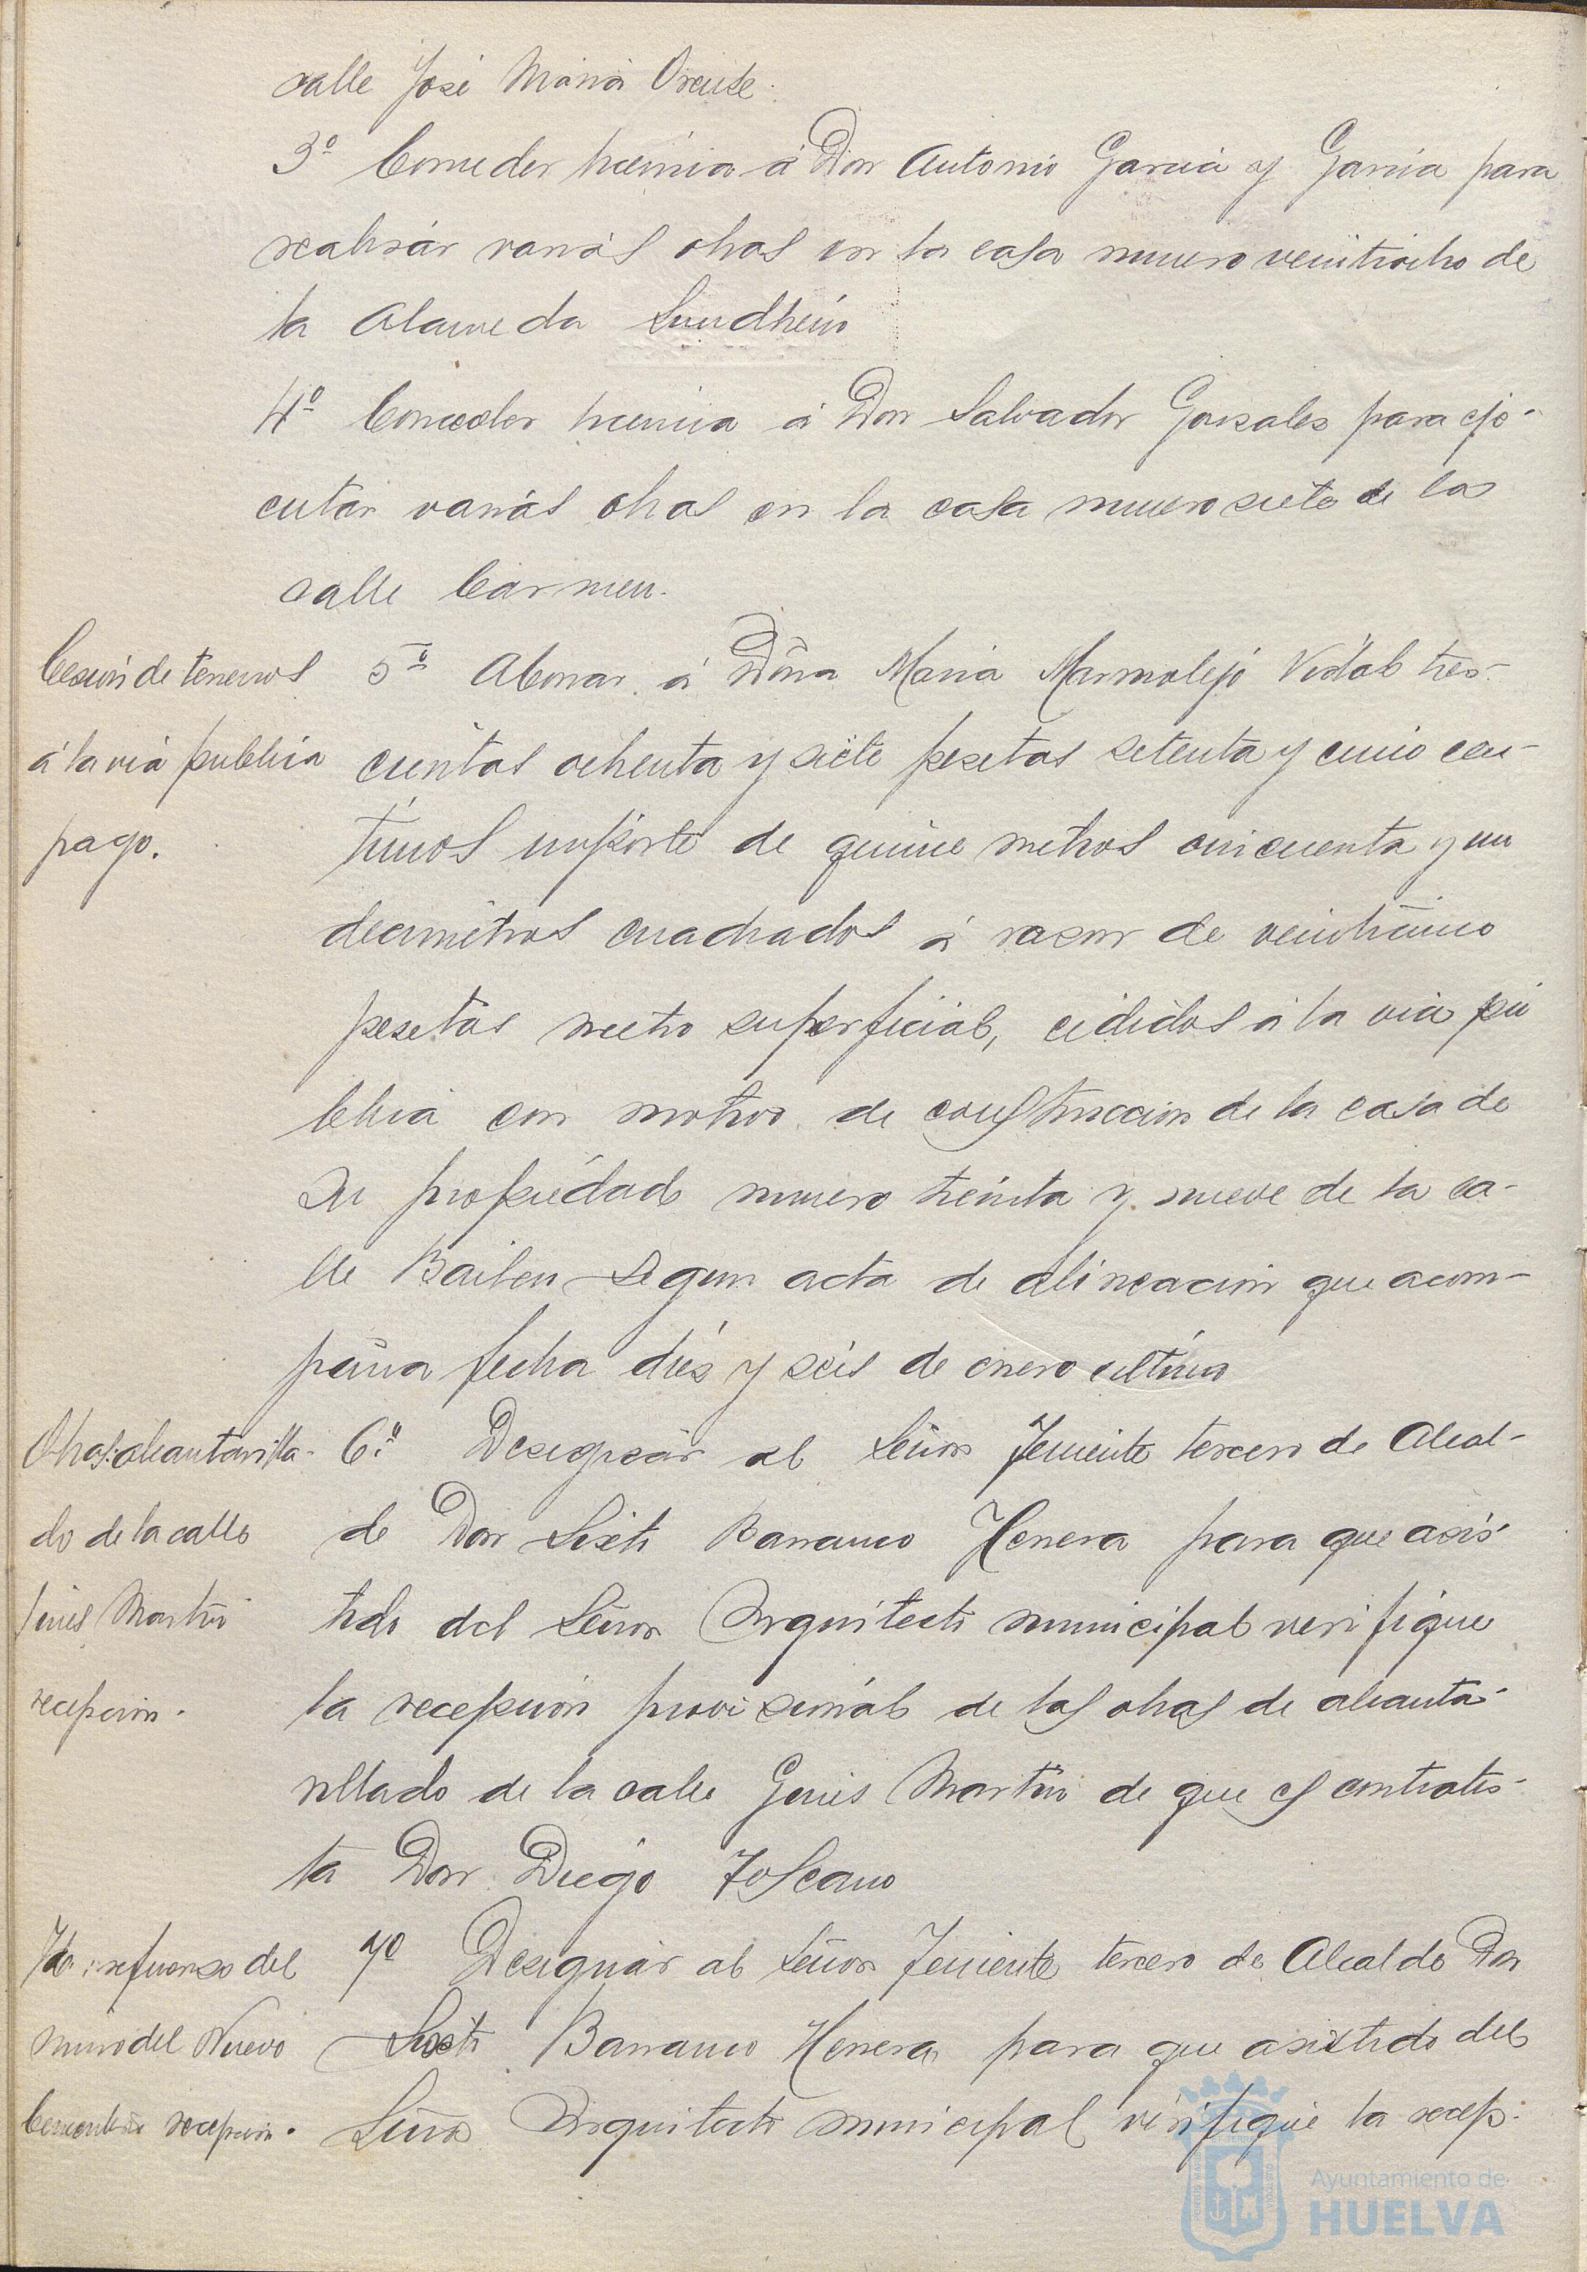 calle José María Orense.
3º Conceder licencia á Don Antonio García y García para
realizár varias obras en la casa número veintiocho de
la Alameda Sundhein
4º Conceder licencia á Don Salvador Gonzalez para eje-
cutar varias obras en la casa número siete de la
calle Cármen.
Cesión de terrenos
á la via publica
pago.
5º Abonar á Dña María Marmolejo Vidal tres-
cientas ochenta y siete pesetas setenta y cinco cen-
timos importe de quince metros cincuenta y un
decimetros cuadrados á razon de veinticinco
pesetas metro superficial, cedidos á la via pú
blica con motivo de construccion de la casa de
su propiedad número treinta y nueve de la ca-
lle Bailen segun acta de alineacion que acom-
paña fecha diés y seis de enero último
Obras: alcantarilla-
do de la calle
Ginés Martín
recepcion.
6º Designár al Señor Teniente tercero de Alcal-
de Don Sixto Barranco Herrera para que asis-
tido del Señor Arquitecto municipal verifique
la recepción provisional de las obras de alcanta-
rillado de la calle Ginés Martín de que es contratis-
ta Don Diego Toscano
Id. refuerzo del
muro del Nuevo
Cementerio recepcion.
7º Designár al Señor Teniente tercero de Alcalde Don
Sixto Barranco Herrera para que asistido del
Señor Arquitecto municipal verifique la recep-
Ayuntamiento de
HUELVA